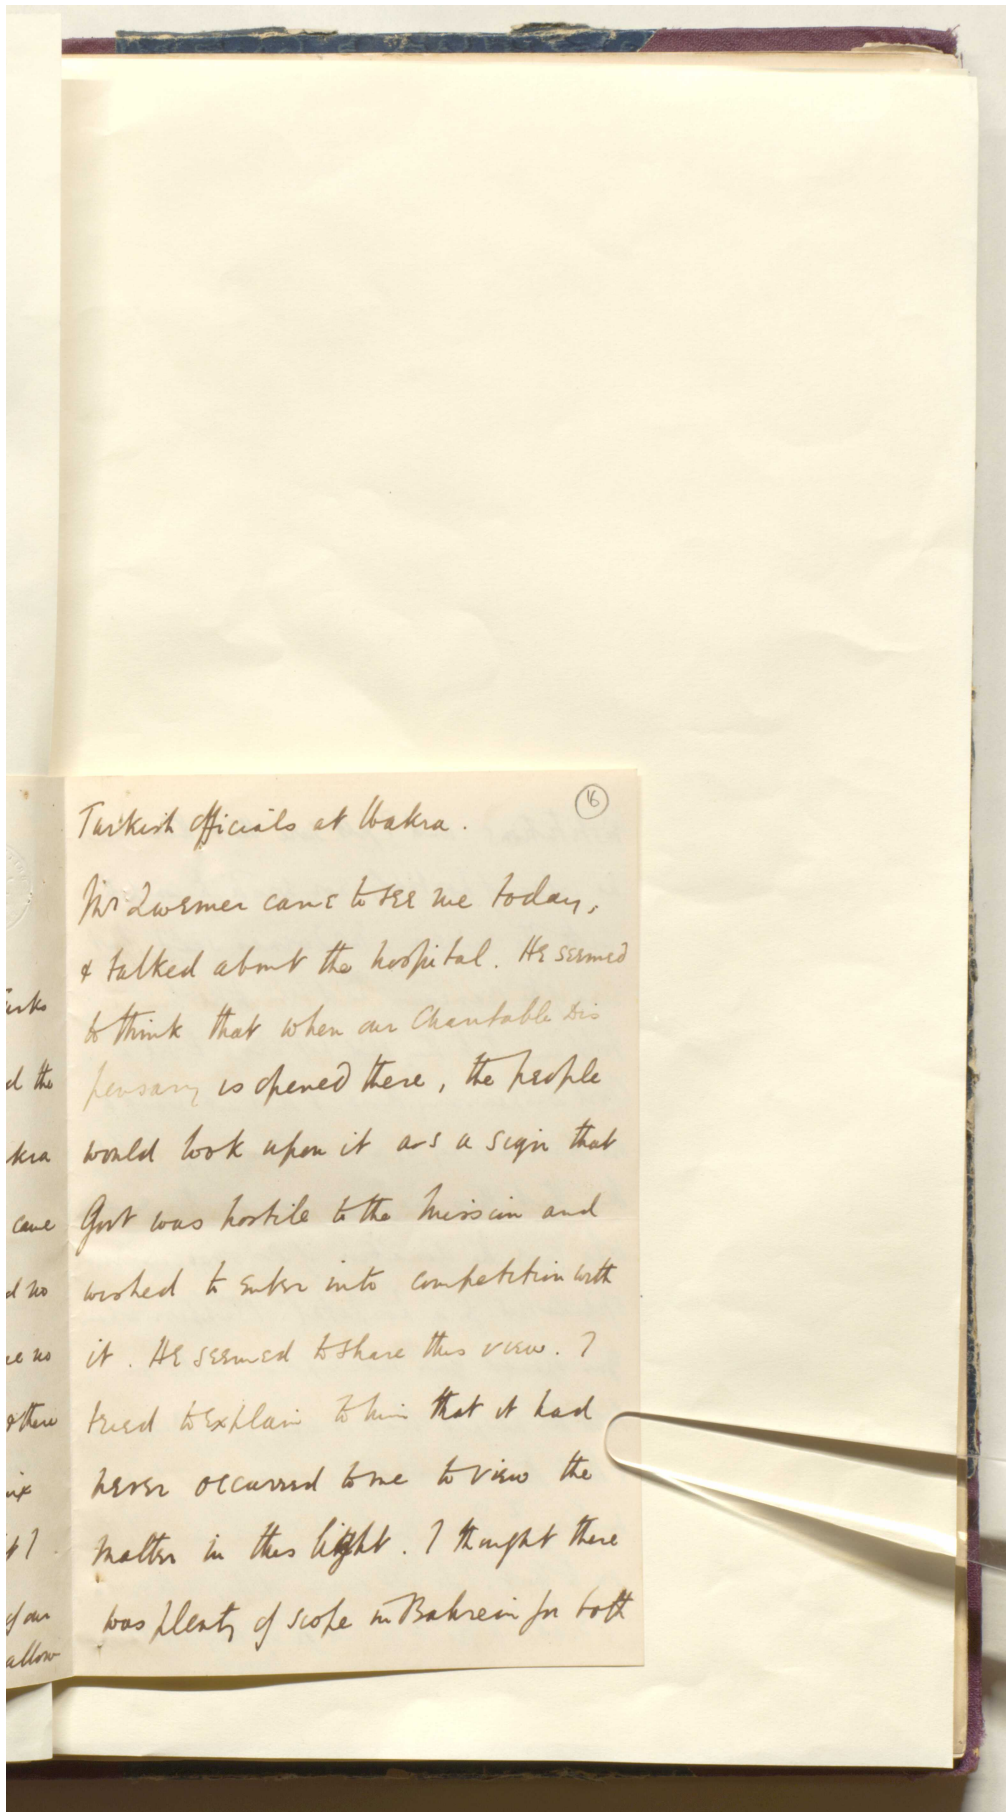 16
Turkish officials at Wakra.
Mr Zwemer came to see me today,
& talked about the hospital. He seemed
to think that when our Charitable Dis
pensary is opened there, the people
would look upon it as a sign that
Govt was hostile to the Mission and
wished to enter into competition with
it. He seemed to share this view. I
tried to explain to him that it had
never occurred to me to view the
matter in this light. I thought there
was plenty of scope in Bahrein for both
d the
kra
came
d no
re no
of our
allow